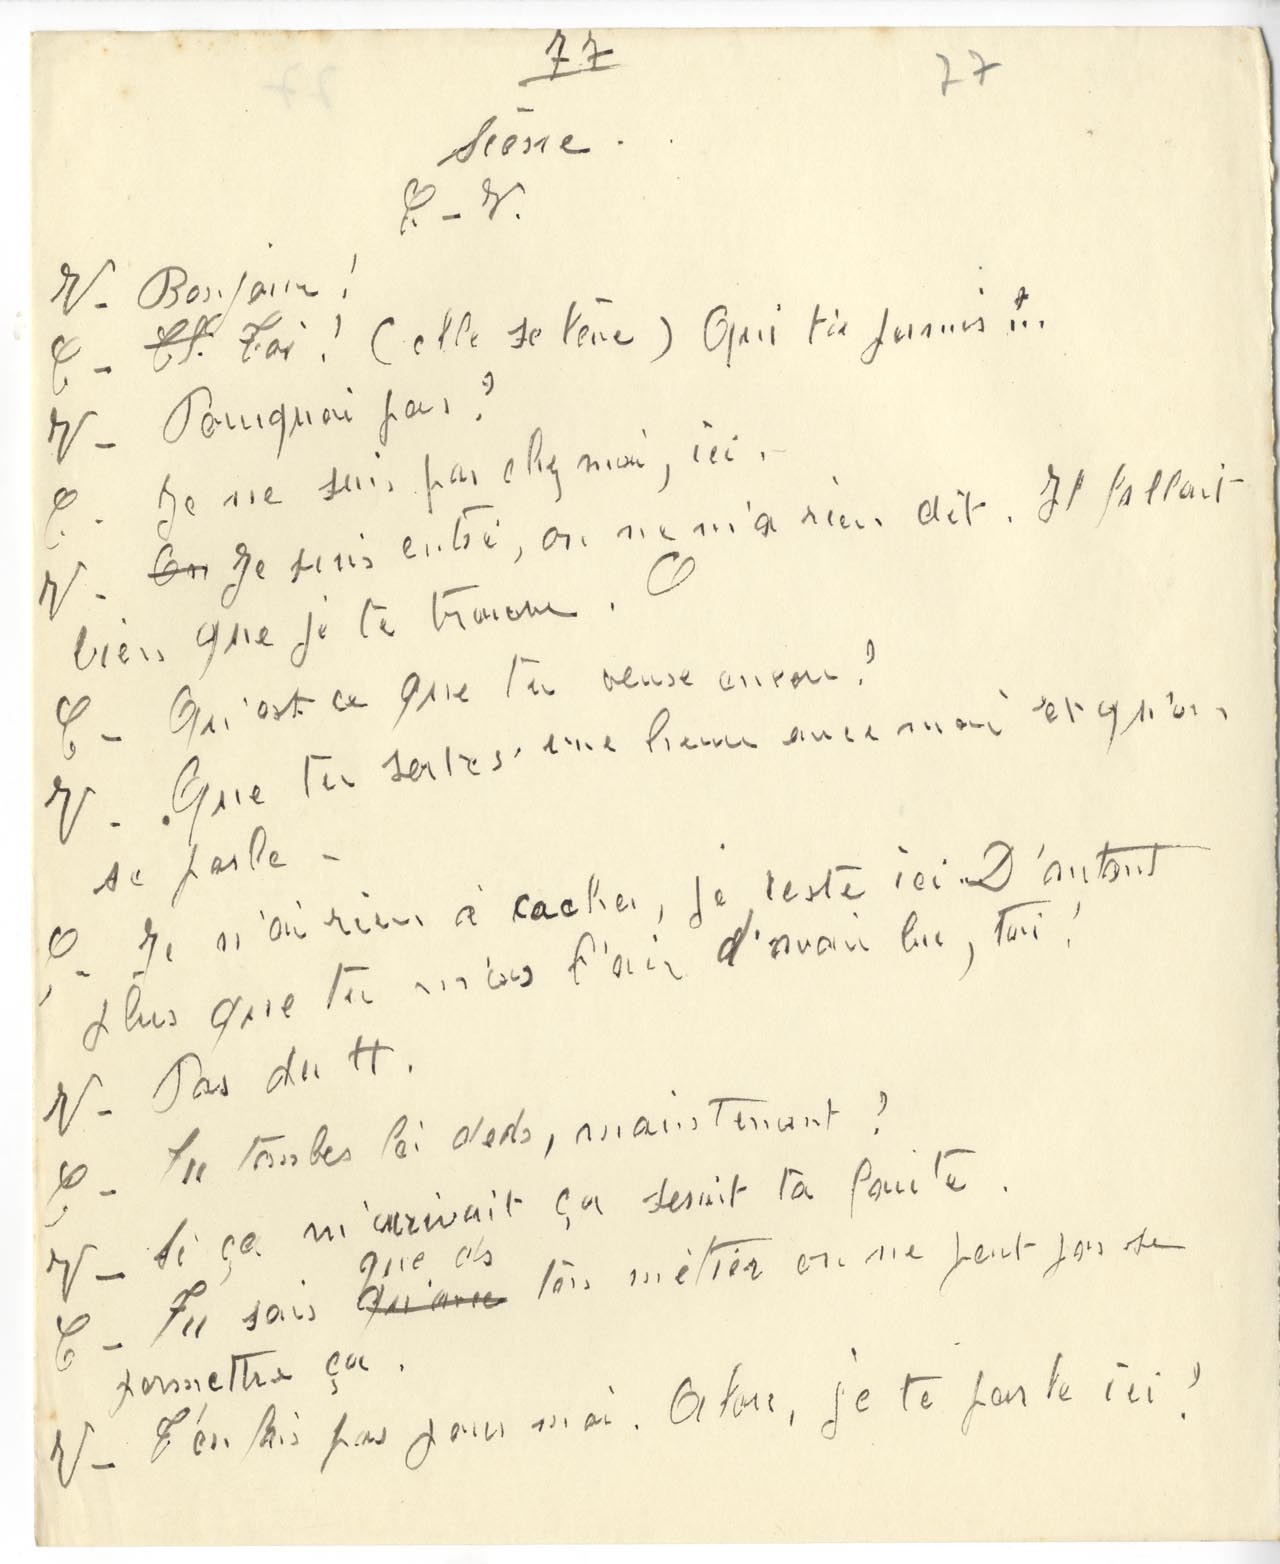 77
77
Scène.
C. - V.
V - Bonjour !
C - Toi ! (elle se lève) Qui t'a permis !!!
V - Pourquoi pas ?
C - Je ne suis pas chez moi, ici -
V - On Je suis entré, on ne m'a rien dit. Il fallait
bien que je te trouve.
C - Qu'est ce que tu veux encore ?
V - Que tu sortes une heure avec moi et qu'on
se parle -
C - Je n'ai rien à cacher, je reste ici. D'autant
plus que tu m'as l'air d'avoir bu, toi !
V - Pas du tt.
C - Tu tombes là ded[an]s, maintenant ?
V - Si ça m'arrivait ça serait ta faute.
que ds
C - Tu sais qu'avec ton métier on ne peut pas se
permettre ça.
V - T'en fais pas pour moi. Alors, je te parle ici ?